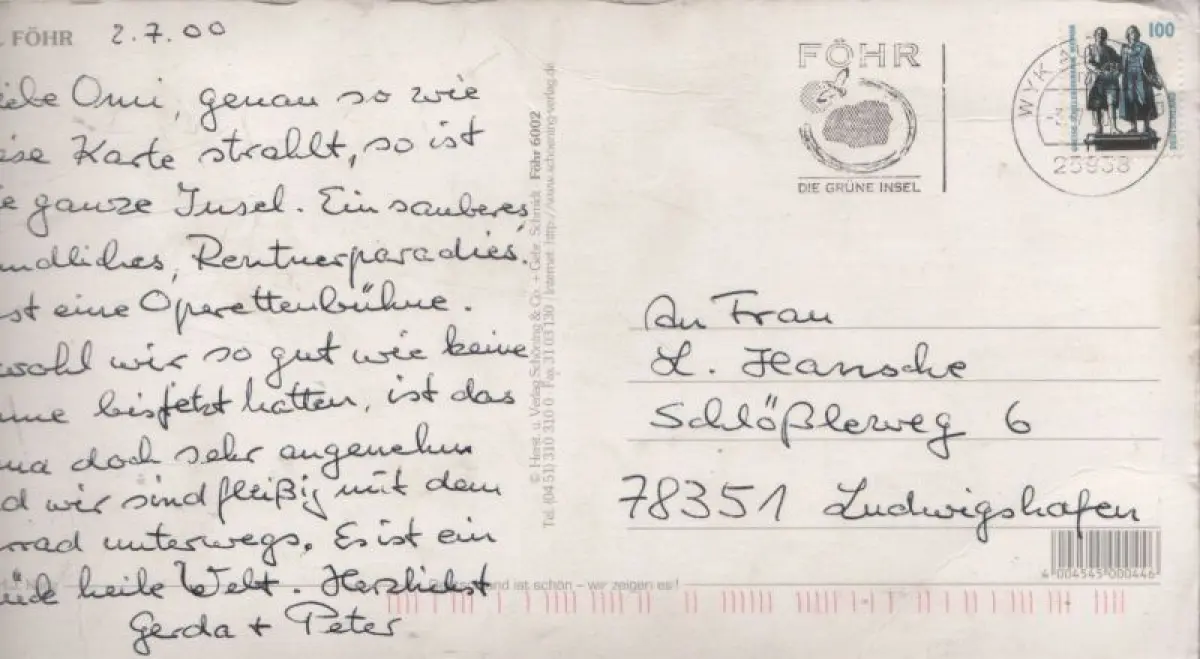 FÖHR 2.7.00
iebe Omi, genau so wie
ese Karte strahlt, so ist
e ganze Insel. Ein sauberes
ndliches, Rentnerparadies.
st eine Operettenbühne.
wohl wir so gut wie keine
nne bisjetzt hatten, ist das
ma doch sehr angenehm
d wir sind fleißig mit dem
rrad unterwegs. Es ist ein
ück heile Welt. Herzlichst
Gerda + Peter
© Herst. u. Verlag Schöning & Co. + Gebr. Schmidt Föhr 6002
Tel. (04 51) 310 310 0 · Fax 31 03 130 / Internet: http://www.schoening-verlag.de
Deutschland ist schön – wir zeigen es!
FÖHR
DIE GRÜNE INSEL
WYK
25938
100
An Frau
L. Hanschke
Schlößlerweg 6
78351 Ludwigshafen
4 004545 000446